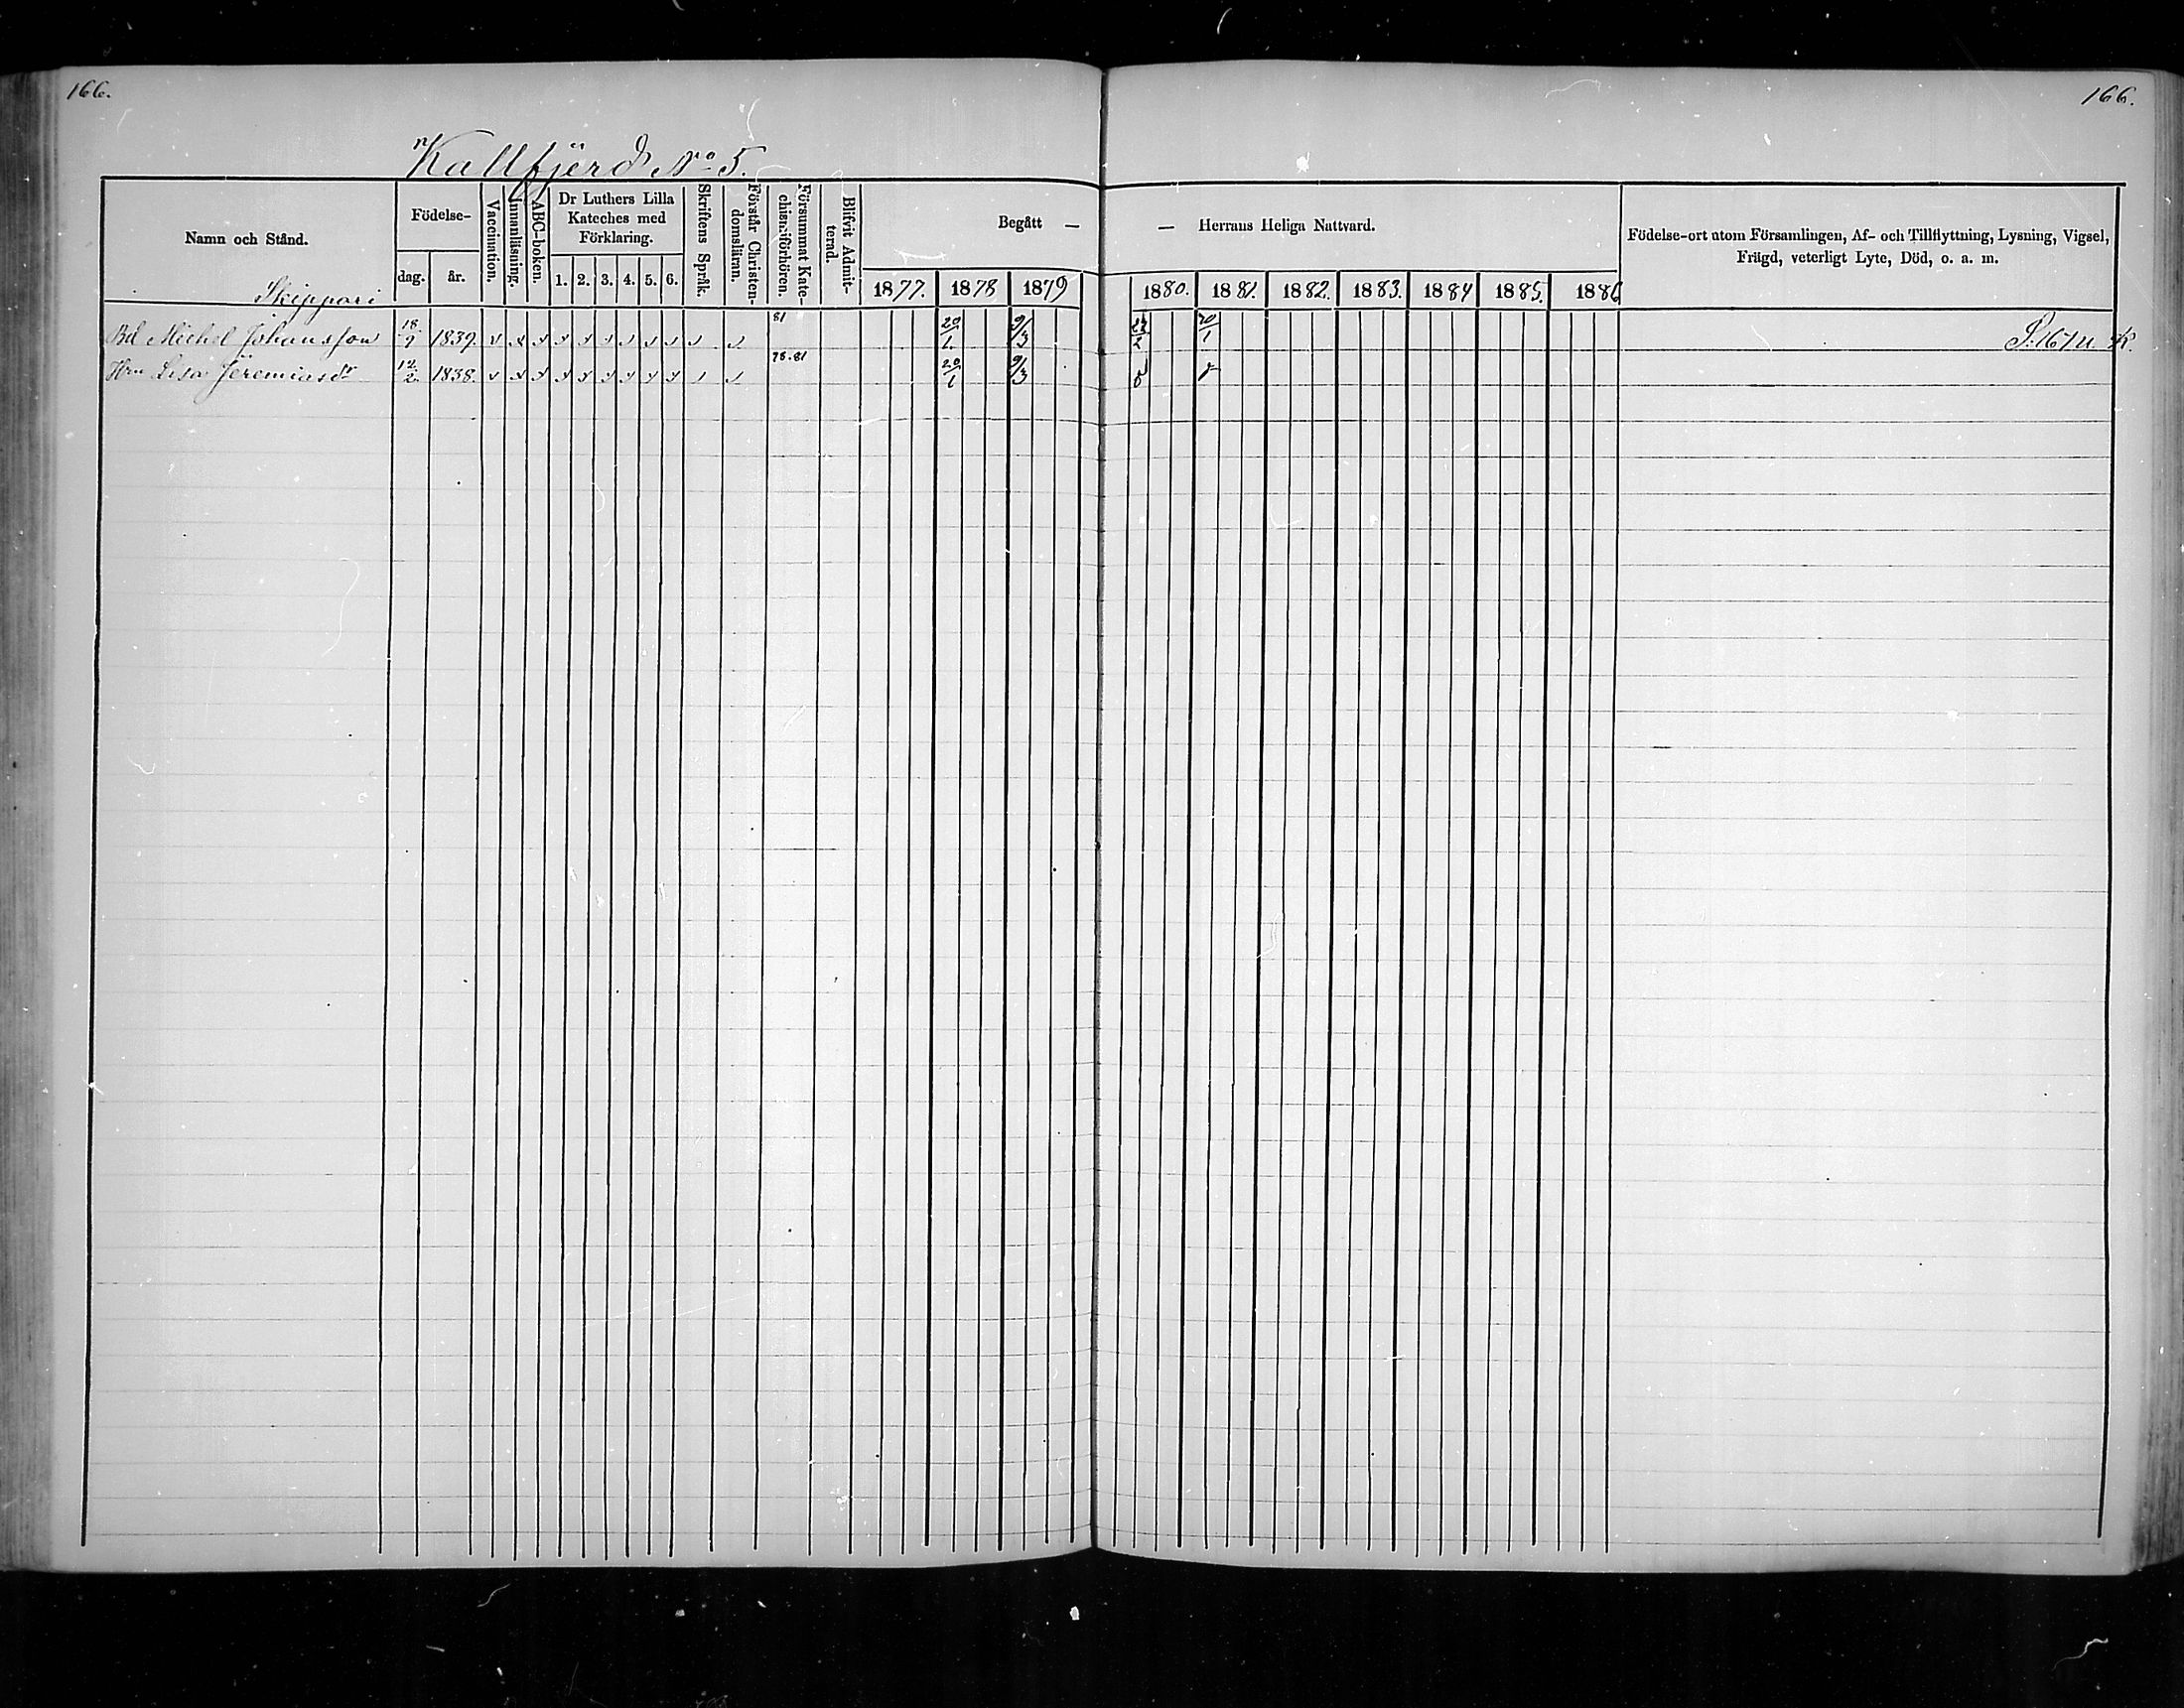 166.
166.
Kallfjerd No 5.
Namn och Stånd.
Födelse-
dag. år.
Vaccination.
Innanläsning.
ABC-boken.
Dr Luthers Lilla
Kateches med
Förklaring.
1. 2. 3. 4. 5. 6.
Skriftens Språk.
Förstår Christen-
domsläran.
Försummat Kate-
chismiförhören.
Blifvit Admit-
terad.
Begått — — Herrans Heliga Nattvard.
1877. 1878 1879 1880. 1881. 1882. 1883. 1884 1885. 1886
Födelse-ort utom Församlingen, Af- och Tillflyttning, Lysning, Vigsel,
Frägd, veterligt Lyte, Död, o. a. m.
Skippari
Bd Michel Johansson 18/9 1839. 81 20/1. 9/3 22/2 20/1
Hrn Lisa Jeremiasdr 12/2. 1838. 78.81 20/1 9/3